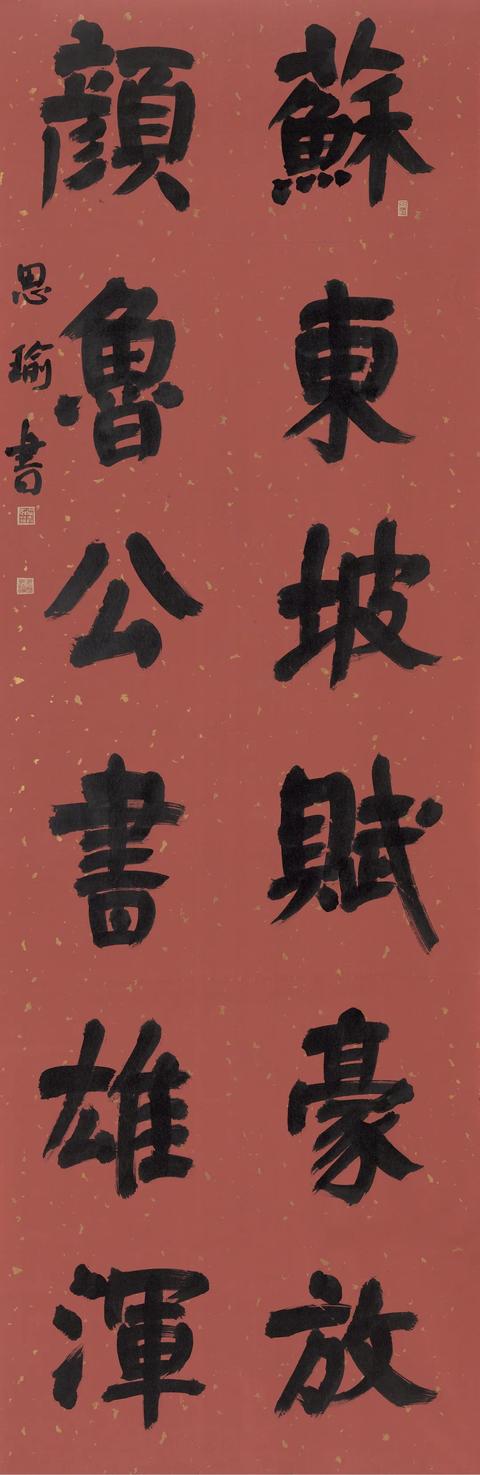 蘇東坡賦豪放
顏魯公書雄渾
思瑜書